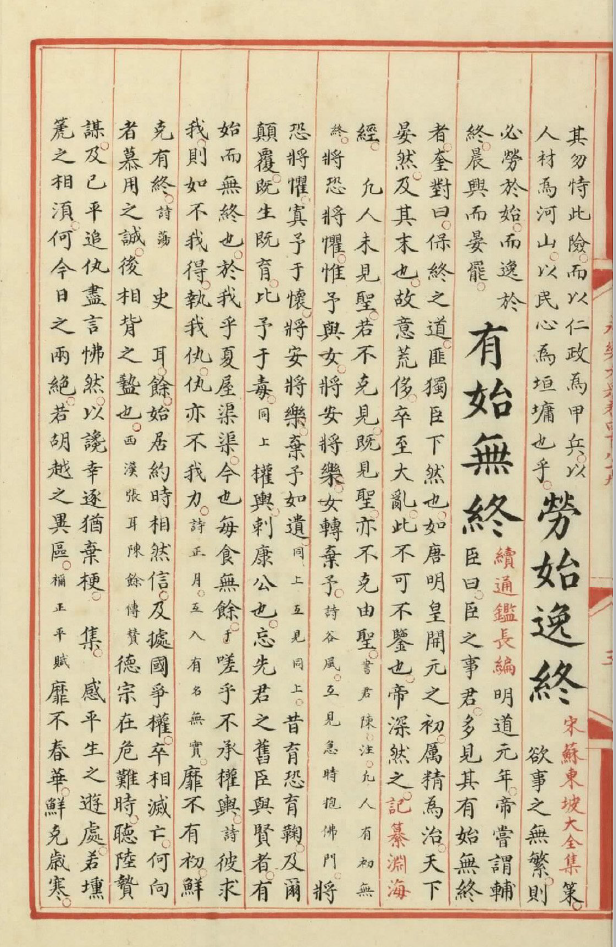 其勿恃此險而以仁政為甲兵以
人材為河山以民心為垣墉也乎
勞始逸終
宋蘇東坡大全集 策
欲事之無繁則
必勞於始而逸於
終晨興而晏罷
有始無終
續通鑑長編 明道元年帝嘗謂輔
臣曰臣之事君多見其有始無終
者奎對曰保終之道匪獨臣下然也如唐明皇開元之初厲精為治天下
晏然及其末也故意荒侈卒至大亂此不可不鑒也帝深然之 記纂淵海
經 凡人未見聖若不克見既見聖亦不克由聖 書君陳注凡人有初無
終 將恐將懼惟予與女將安將樂女轉棄予 詩谷風互見急時抱佛門 將
恐將懼寘予于懷將安將樂棄予如遺 同上互見同上 昔育恐育鞠及爾
顛覆既生既育比予于毒 同上 權輿刺康公也忘先君之舊臣與賢者有
始而無終也於我乎夏屋渠渠今也每食無餘于嗟乎不承權輿 詩 彼求
我則如不我得執我仇仇亦不我力 詩正月互入有名無實 靡不有初鮮
克有終 詩蕩 史 耳餘始居約時相然信及據國爭權卒相滅亡何向
者慕用之誠後相背之盭也 西漢張耳陳餘傳贊 德宗在危難時聽陸贄
謀及已平追仇盡言怫然以讒幸逐猶棄梗 集 感平生之遊處若壎
篪之相湏何今日之兩絕若胡越之異區 稱正平賦 靡不春華鮮克歲寒